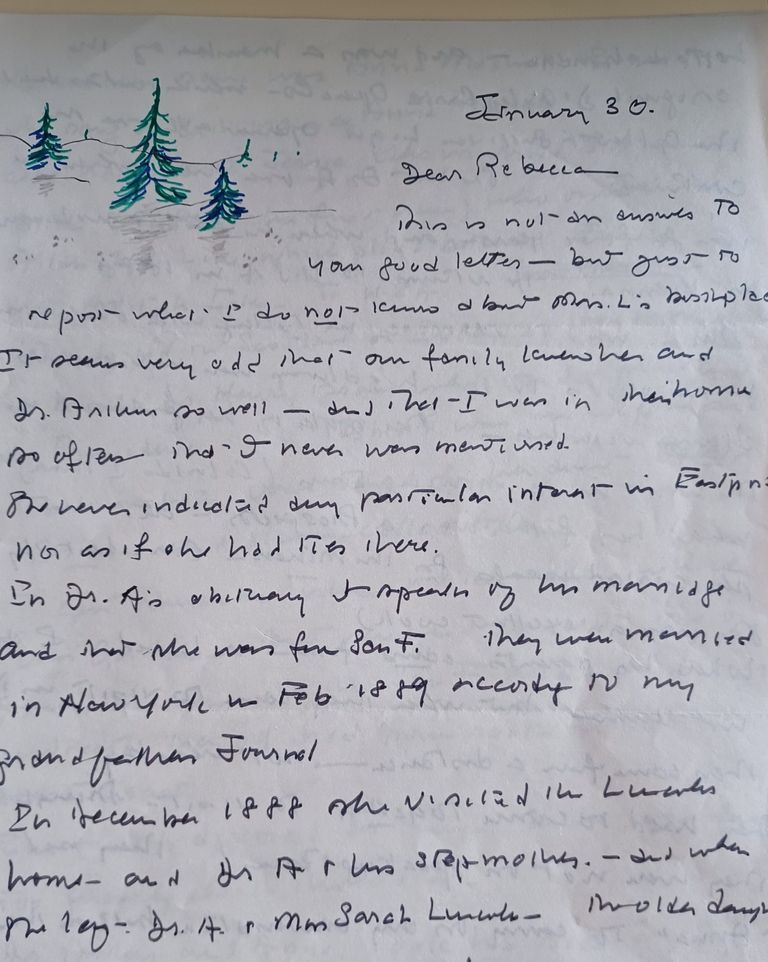 January 30.
Dear Rebecca
This is not an answer to
your good letter — but just to
report what I do not know about Mrs. L's birthplac
It seems very odd that our family knew her and
Dr. Arthur so well — and that I was in their home
so often that it never was mentioned.
She never indicated any particular interest in Eastpo
nor as if she had ties there.
In Dr. A's obituary it speaks of his marriage
and that she was from San F. They were married
in New York in Feb 1889 according to my
grandfathers Journal
In December 1888 she visited the Lincoln
home and Dr A & his stepmother. — and when
she left Dr. A. & Miss Sarah Lincoln — the older daugh